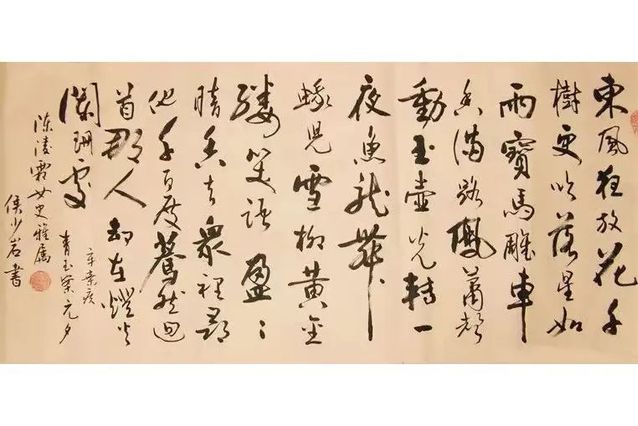 東風狂放花千
樹更吹落星如
雨寶馬雕車
香滿路鳳蕭聲
動玉壺光轉一
夜魚龍舞
蛾兒雪柳黃金
縷笑語盈〻
暗香去衆裡尋
他千百度驀然迴
首那人却在燈火
闌珊處
辛棄疾
青玉案元夕
陳凌霄女史雅屬
侯少岩書